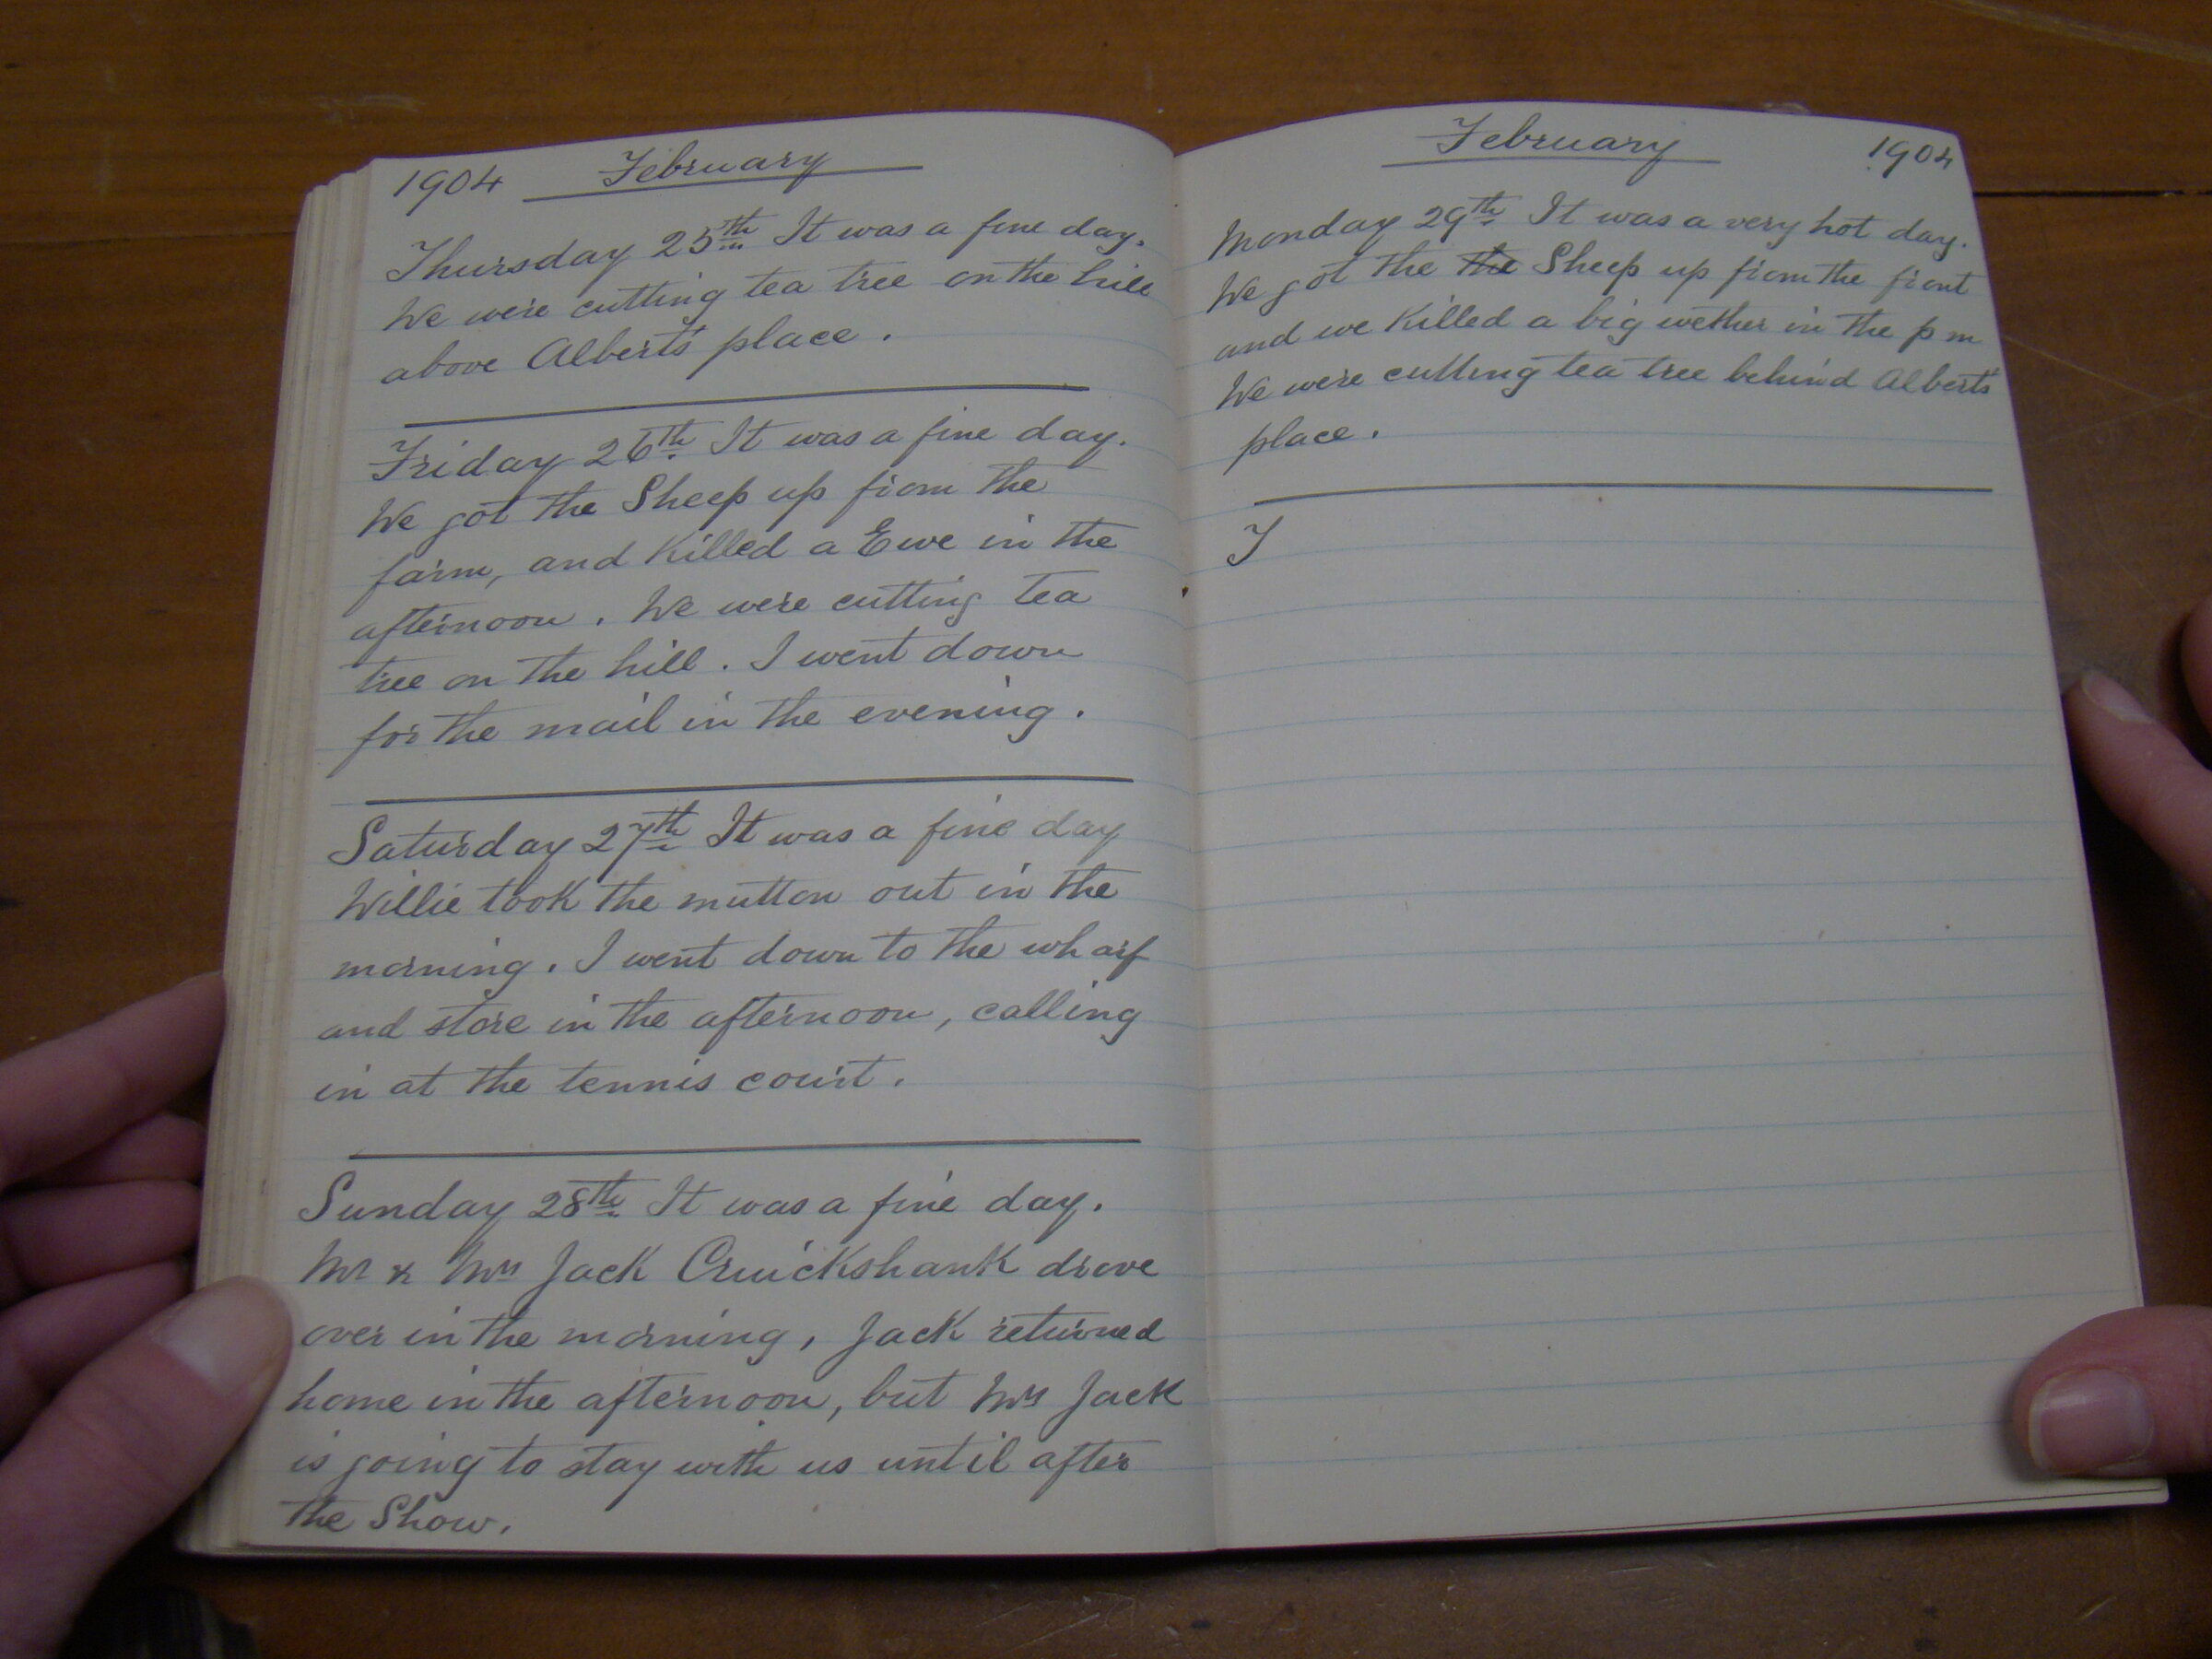 1904 February
Thursday 25th It was a fine day.
We were cutting tea tree on the hill
above Alberts place.
Friday 26th It was a fine day.
We got the Sheep up from the
farm, and Killed a Ewe in the
afternoon. We were cutting tea
tree on the hill. I went down
for the mail in the evening.
Saturday 27th It was a fine day
Willie took the mutton out in the
morning. I went down to the wharf
and store in the afternoon, calling
in at the tennis court.
Sunday 28th It was a fine day.
Mr & Mrs Jack Cruickshank drove
over in the morning, Jack returned
home in the afternoon, but Mrs Jack
is going to stay with us until after
the Show.
February 1904
Monday 29th It was a very hot day.
We got the the Sheep up from the front
and we Killed a big wether in the p m
We were cutting tea tree behind Alberts
place.
T